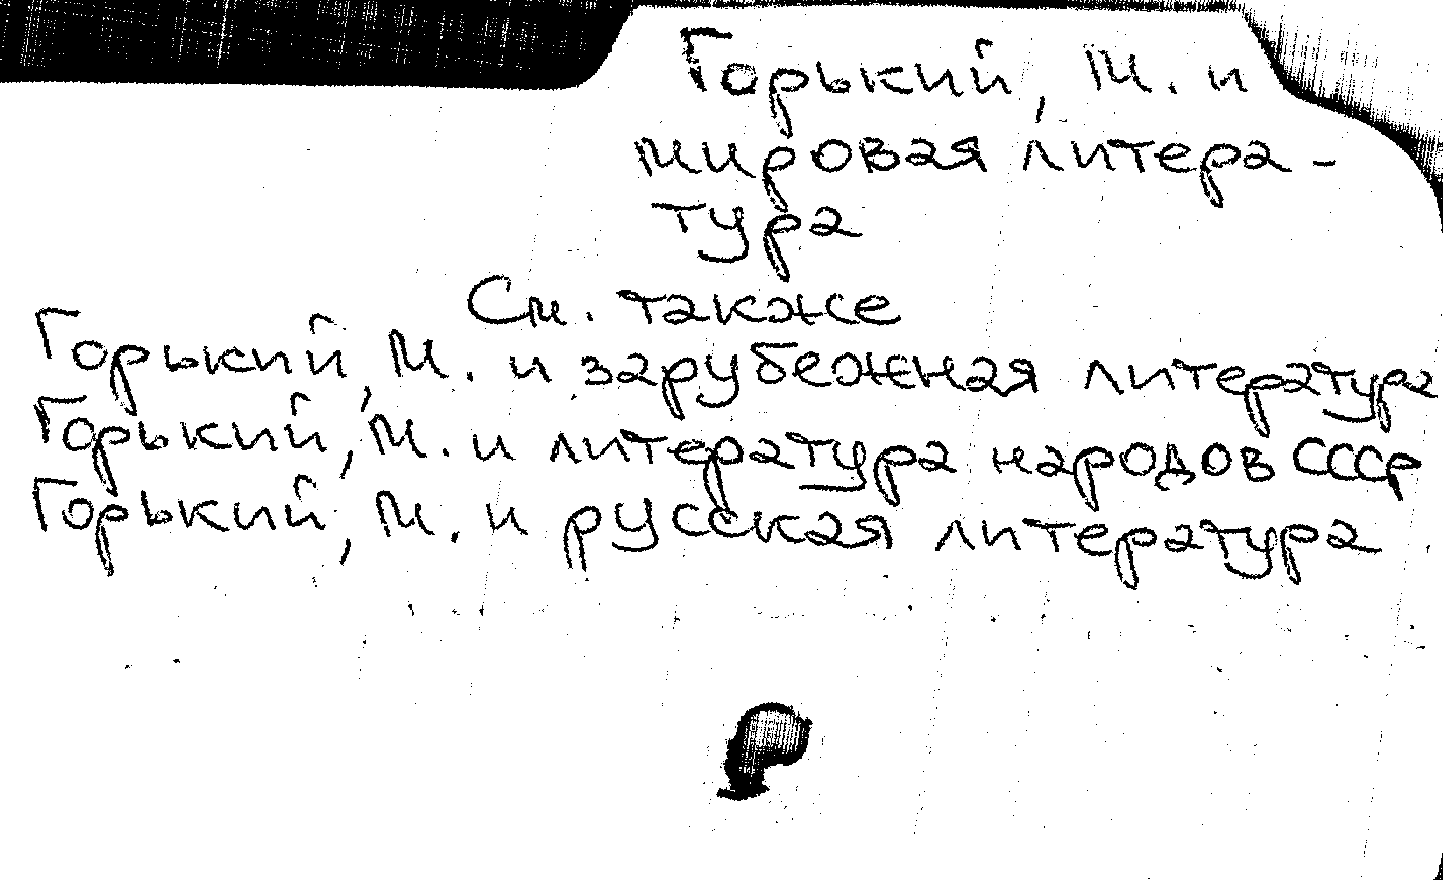 Горький, М. и
мировая литера-
тура
См. также
Горький, М. и зарубежная литература
Горький, М. и литература народов СССР
Горький, М. и русская литература